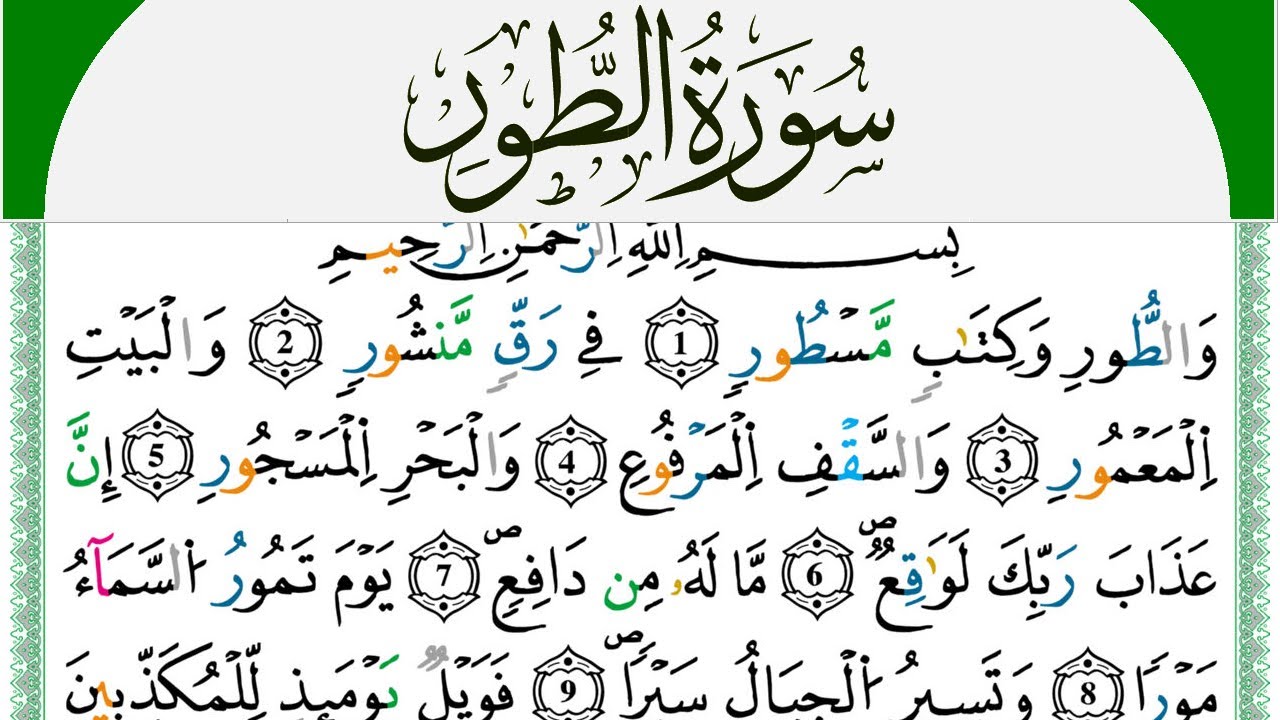 سُورَةُ الطُّورِ
بِسْمِ اِللَّهِ اِلرَّحْمَٰنِ اِلرَّحِيمِ
وَالطُّورِ وَكِتَٰبٖ مَّسْطُورٖ 1 فِے رَقّٖ مَّنشُورٖ 2 وَالْبَيْتِ
اِلْمَعْمُورِ 3 وَالسَّقْفِ اِلْمَرْفُوعِ 4 وَالْبَحْرِ اِلْمَسْجُورِ 5 إِنَّ
عَذَابَ رَبِّكَ لَوَٰقِعٞ ص 6 مَّا لَهُۥ مِن دَافِعٖ ص 7 يَوْمَ تَمُورُ اُ۬لسَّمَآءُ
مَوْرٗا 8 وَتَسِيرُ اُ۬لْجِبَالُ سَيْرٗا ص 9 فَوَيْلٞ يَوْمَئِذٖ لِّلْمُكَذِّبِينَ